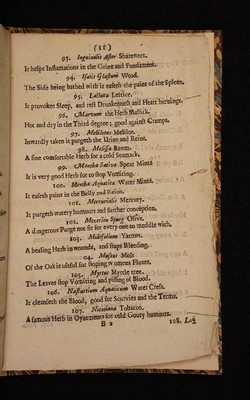 (11)
93. Inguinalis Aster Sharewort.
It helps Inflamations in the Urine and Fundament.
94. Isatis Glastum Woad.
The Side being bathed with it easeth the paine of the Spleen.
95. Lactuca Lettice.
It provokes Sleep, and rest Drunkenness and Heart burnings.
96. Marum the Herb Mastick.
Hot and dry in the Third degree; good against Cramps.
97. Melilotus Melilot.
Inwardly taken it purgeth the Urine and Reins.
98. Melissa Bawm.
A fine comfortable Herb for a cold Stomack.
99. Mentha Sativa Spear Mintt
It is very good Herb for to stop Vomiting.
100. Mentha Aquatica Water Mintt.
It easeth paint in the Belly and Reins.
101. Mercurialis Mercury.
It purgeth watery humours and further conception.
102. Mezerion Spurg Olive.
A dangerous Purge not fit for every one to meddle with.
103. Milefolium Yarrow.
A healing Herb in wounds, and stops Bleeding.
104. Muscus Moss
Of the Oak is usefull for stoping womens Fluxes.
105. Myrtus Myrtle tree.
The Leaves stop Vomitting and pissing of Blood.
106. Nasturtium Aquaticum Water Cress.
It cleanseth the Blood, good for Scurvies and the Terms.
107. Nicotiana Tobacco.
A famous Herb in Oyntments for cold Gouty humours.
B 2 108. Lot